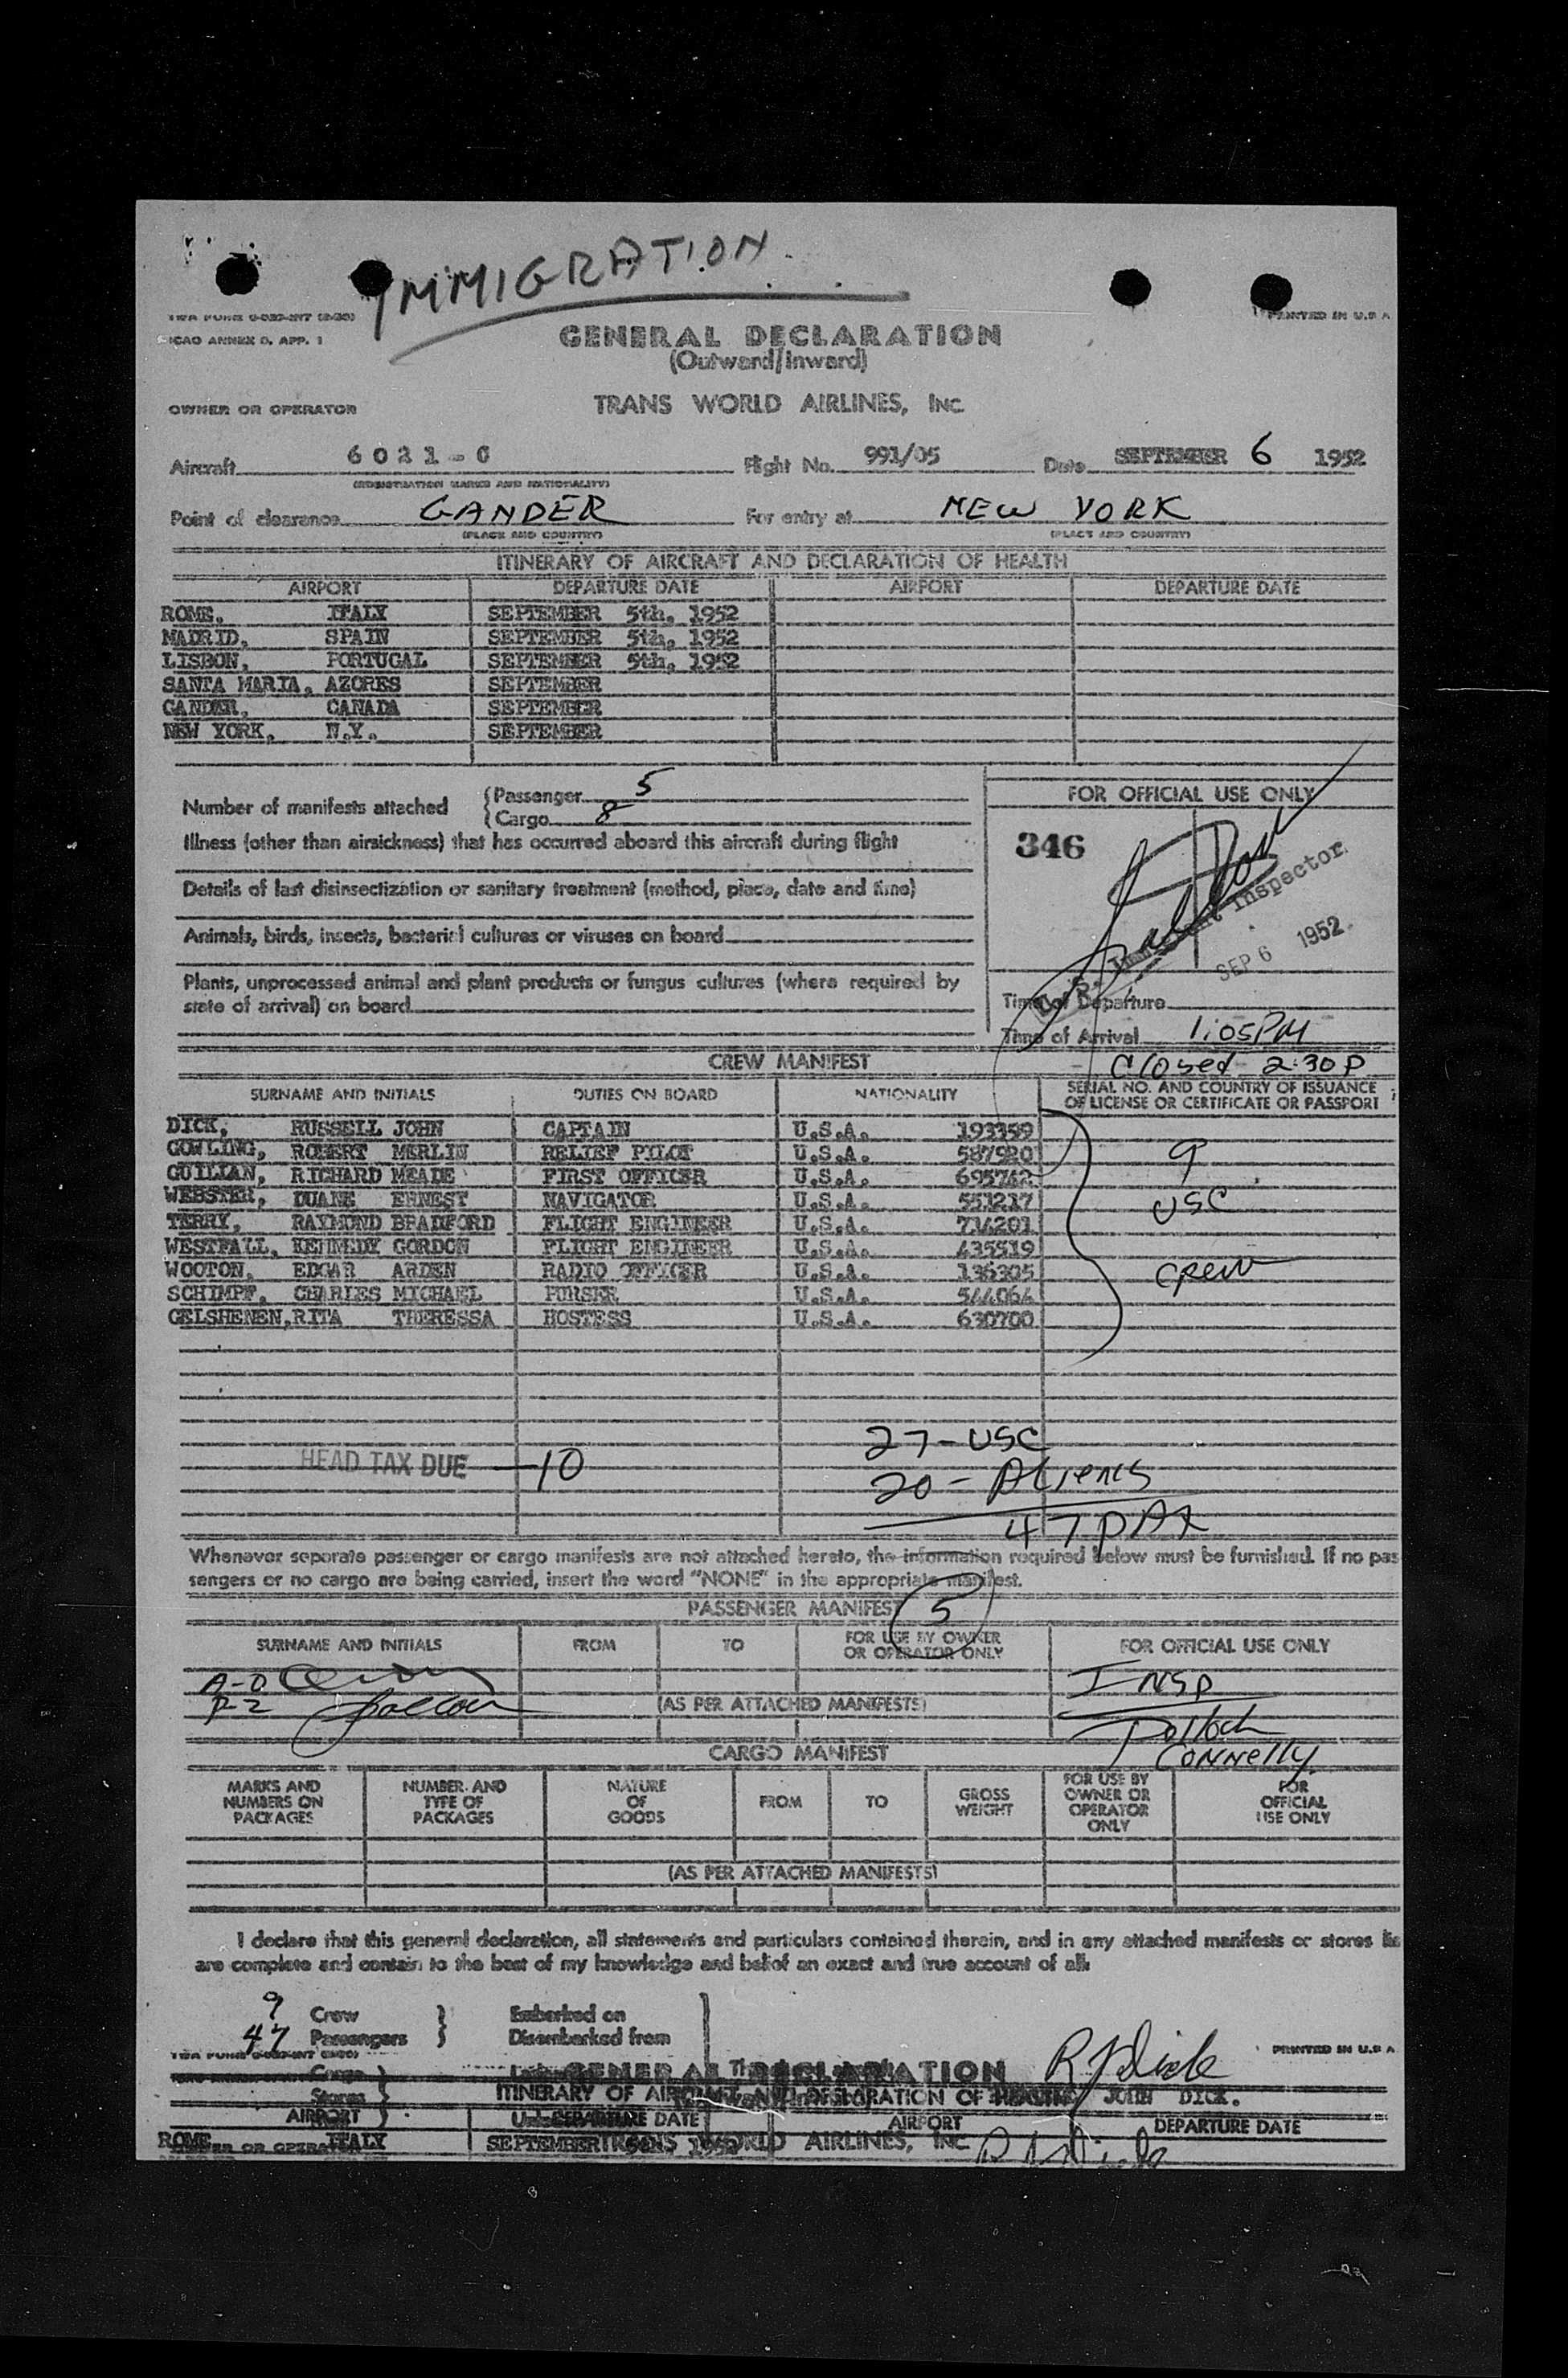 IMMIGRATION
PRINTED IN U.S.A
ICAO ANNEX 9, APP. 1
GENERAL DECLARATION
(Outward/Inward)
OWNER OR OPERATOR TRANS WORLD AIRLINES, INC
Aircraft 6021-C Flight No. 991/05 Date SEPTEMBER 6 1952
(REGISTRATION MARKS AND NATIONALITY)
Point of clearance GANDER For entry at NEW YORK
(PLACE AND COUNTRY) (PLACE AND COUNTRY)
ITINERARY OF AIRCRAFT AND DECLARATION OF HEALTH
AIRPORT DEPARTURE DATE AIRPORT DEPARTURE DATE
ROME, ITALY SEPTEMBER 5th, 1952
MADRID, SPAIN SEPTEMBER 5th, 1952
LISBON, PORTUGAL SEPTEMBER 5th, 1952
SANTA MARIA, AZORES SEPTEMBER
GANDER, CANADA SEPTEMBER
NEW YORK, N.Y. SEPTEMBER
Number of manifests attached
Passenger 5
Cargo 8
FOR OFFICIAL USE ONLY
346
Illness (other than airsickness) that has occurred aboard this aircraft during flight
Details of last disinsectization or sanitary treatment (method, place, date and time)
Immigrant Inspector
SEP 6 1952
Animals, birds, insects, bacterial cultures or viruses on board
Plants, unprocessed animal and plant products or fungus cultures (where required by
state of arrival) on board
Time of Departure
Time of Arrival 1:05PM
Closed 2:30P
CREW MANIFEST
SURNAME AND INITIALS DUTIES ON BOARD NATIONALITY SERIAL NO. AND COUNTRY OF ISSUANCE
OF LICENSE OR CERTIFICATE OR PASSPORT
DICK, RUSSELL JOHN CAPTAIN U.S.A. 193359
GOWLING, ROBERT MERLIN RELIEF PILOT U.S.A. 587520
GUILIAN, RICHARD MEADE FIRST OFFICER U.S.A. 695742
WEBSTER, DUANE ERNEST NAVIGATOR U.S.A. 553217
TERRY, RAYMOND BRADFORD FLIGHT ENGINEER U.S.A. 714201
WESTFALL, KENNEDY GORDON FLIGHT ENGINEER U.S.A. 435519
WOOTON, EDGAR ARDEN RADIO OFFICER U.S.A. 136305
SCHIMPF, CHARLES MICHAEL PURSER U.S.A. 544064
GELSHENEN, RITA THERESSA HOSTESS U.S.A. 630700
9
USC
Crew
27-USC
HEAD TAX DUE 10
20-Aliens
47 PAX
Whenever separate passenger or cargo manifests are not attached hereto, the information required below must be furnished. If no pas
sengers or no cargo are being carried, insert the word "NONE" in the appropriate manifest.
PASSENGER MANIFEST 5
SURNAME AND INITIALS FROM TO FOR USE BY OWNER
OR OPERATOR ONLY
FOR OFFICIAL USE ONLY
A-O
P-Z
INSP
(AS PER ATTACHED MANIFESTS)
Pollock
Connelly
CARGO MANIFEST
MARKS AND
NUMBERS ON
PACKAGES
NUMBER AND
TYPE OF
PACKAGES
NATURE
OF
GOODS
FROM
TO
GROSS
WEIGHT
FOR USE BY
OWNER OR
OPERATOR
ONLY
FOR
OFFICIAL
USE ONLY
(AS PER ATTACHED MANIFESTS)
I declare that this general declaration, all statements and particulars contained therein, and in any attached manifests or stores lis
are complete and contain to the best of my knowledge and belief an exact and true account of all:
9 Crew Embarked on
47 Passengers Disembarked from
PRINTED IN U.S.A
Cargo
GENERAL DECLARATION
R J Dick
Stores
ITINERARY OF AIRCRAFT AND DECLARATION OF HEALTH JOHN DICK.
AIRPORT DEPARTURE DATE AIRPORT DEPARTURE DATE
ROME, ITALY SEPTEMBER
OWNER OR OPERATOR TRANS WORLD AIRLINES, INC